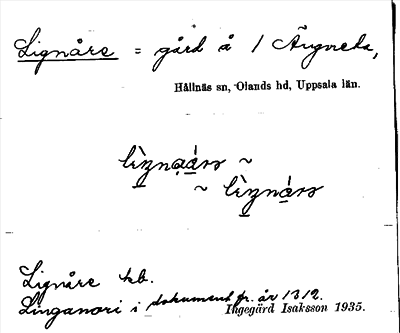 Lignåre = gård å / Ängvreta,
Hållnäs sn, Olands hd, Uppsala län.
Lignåre kb.
Linganori i dokument fr. år 1312.
Ingegärd Isaksson 1935.